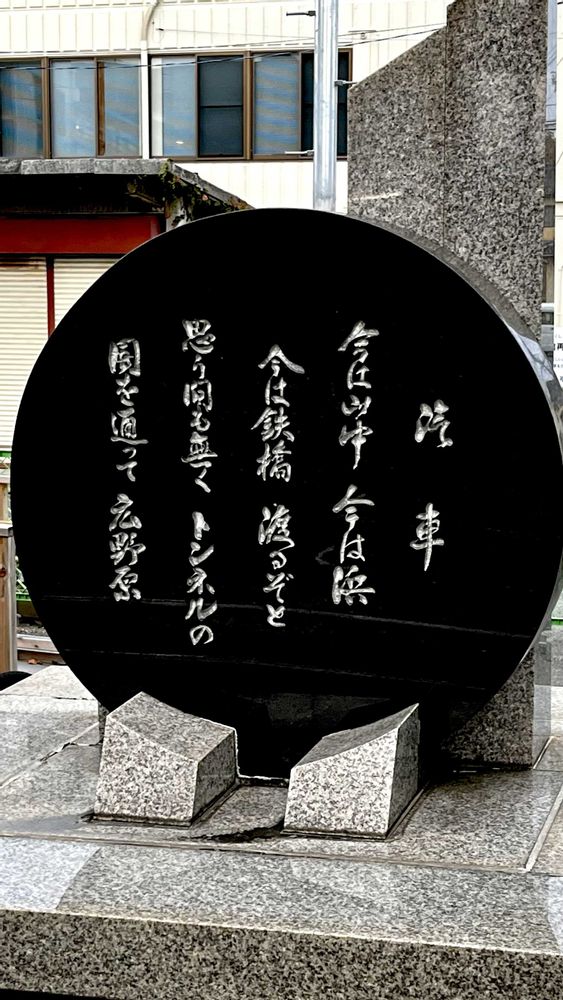 汽車
今は山中 今は浜
今は鉄橋 渡るぞと
思う間も無く トンネルの
闇を通って 広野原